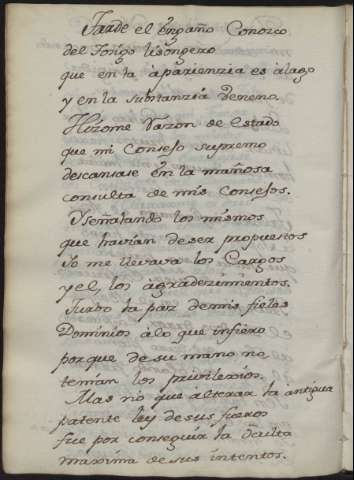 Tarde el Engaño Conozco
del Tosigo lisongero
que en la aparienzia es alago
y en la substanzia veneno.
Hizome Razon de Estado
que mi Consejo supremo
descansase en la mañosa
consulta de mis Consejos.
Y señalando los mismos
que havian de ser propuestos
Yo me llevava los Cargos
y el, los agradezimientos.
Turbo la paz de mis fieles
Dominios álo que infiero
porque de su mano no
tenian los privilexios.
Mas no que alterar la antigua
patente ley de sus fueros
fue por conseguir la oculta
maxima de sus intentos.